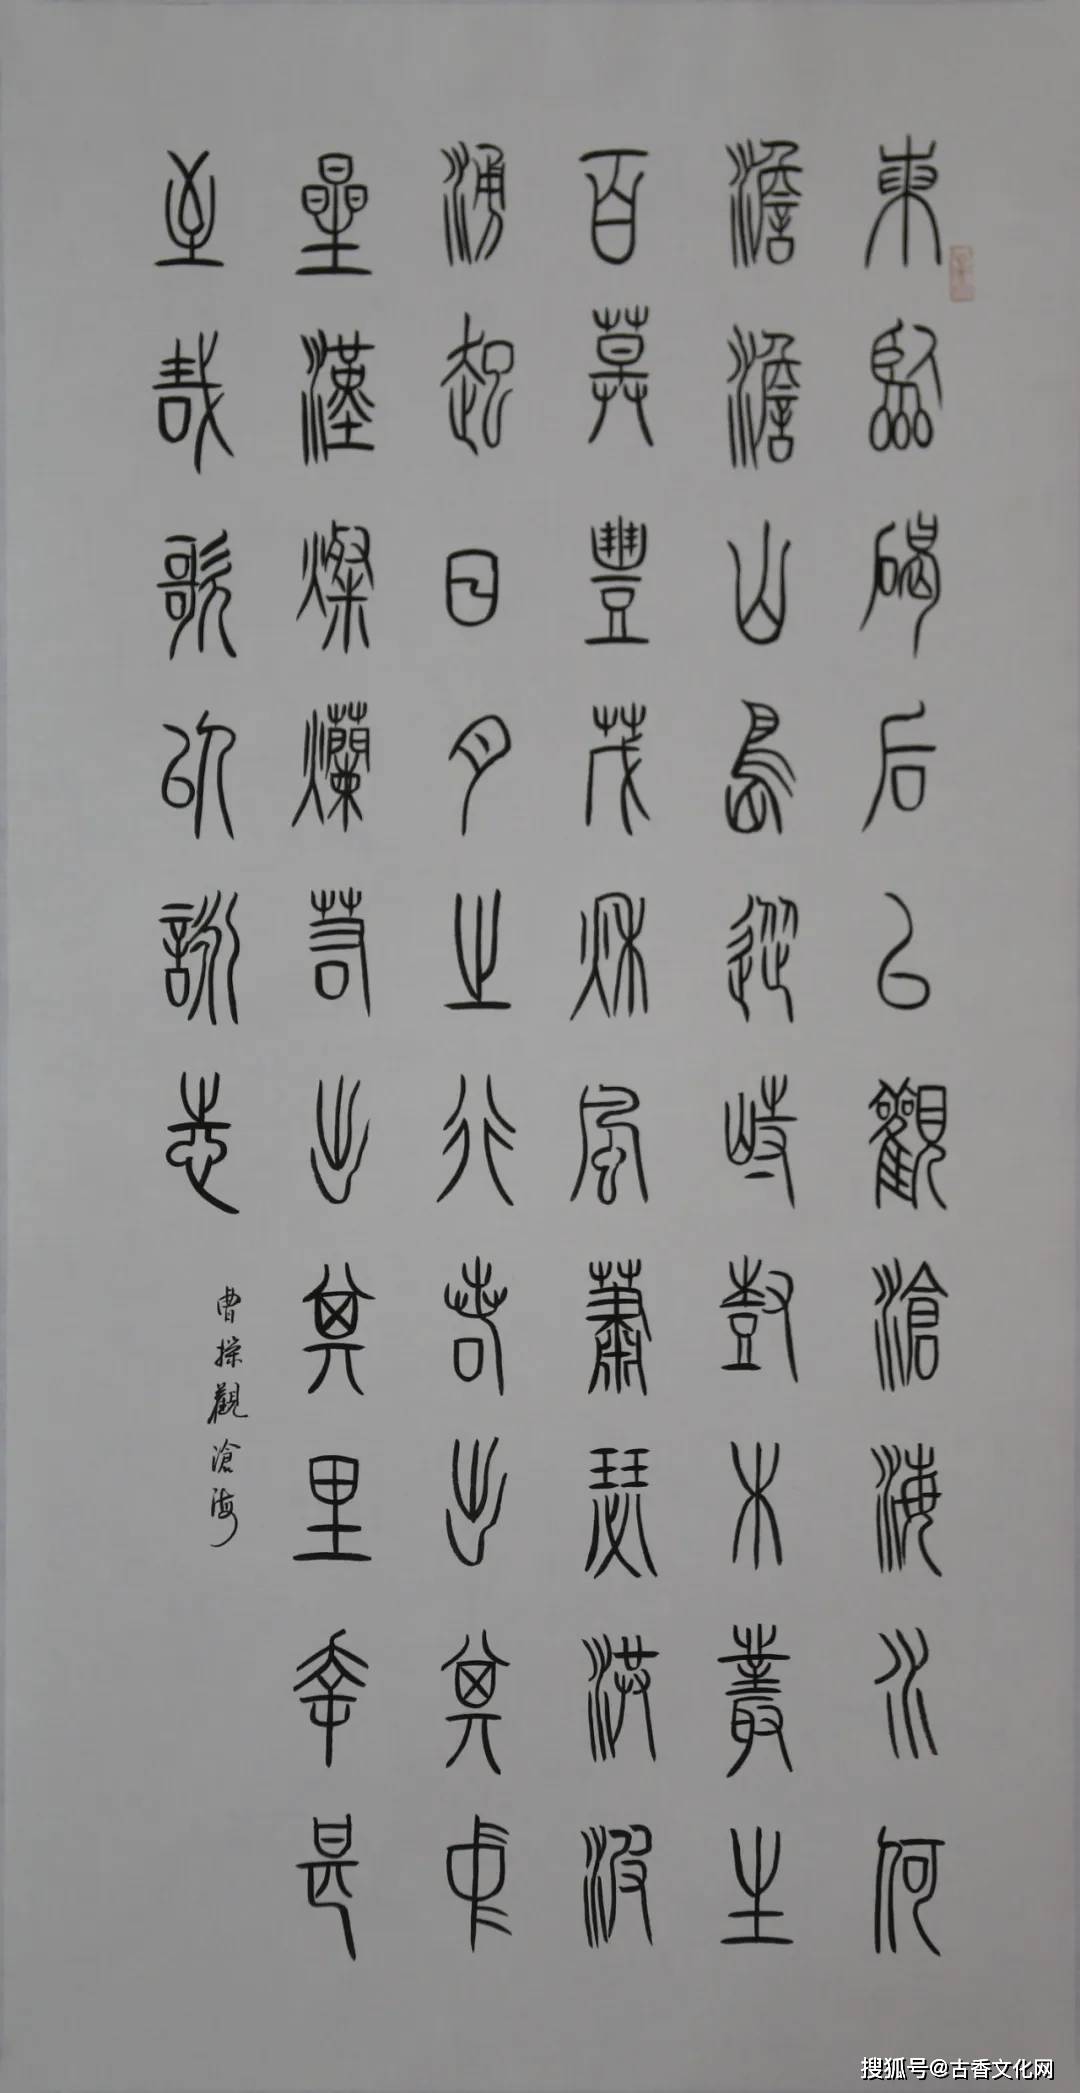 東臨碣石以觀滄海水何
澹澹山島竦峙樹木叢生
百草豐茂秋風蕭瑟洪波
涌起日月之行若出其中
星漢燦爛若出其里幸甚
至哉歌以詠志
曹操觀滄海
搜狐号@古香文化网